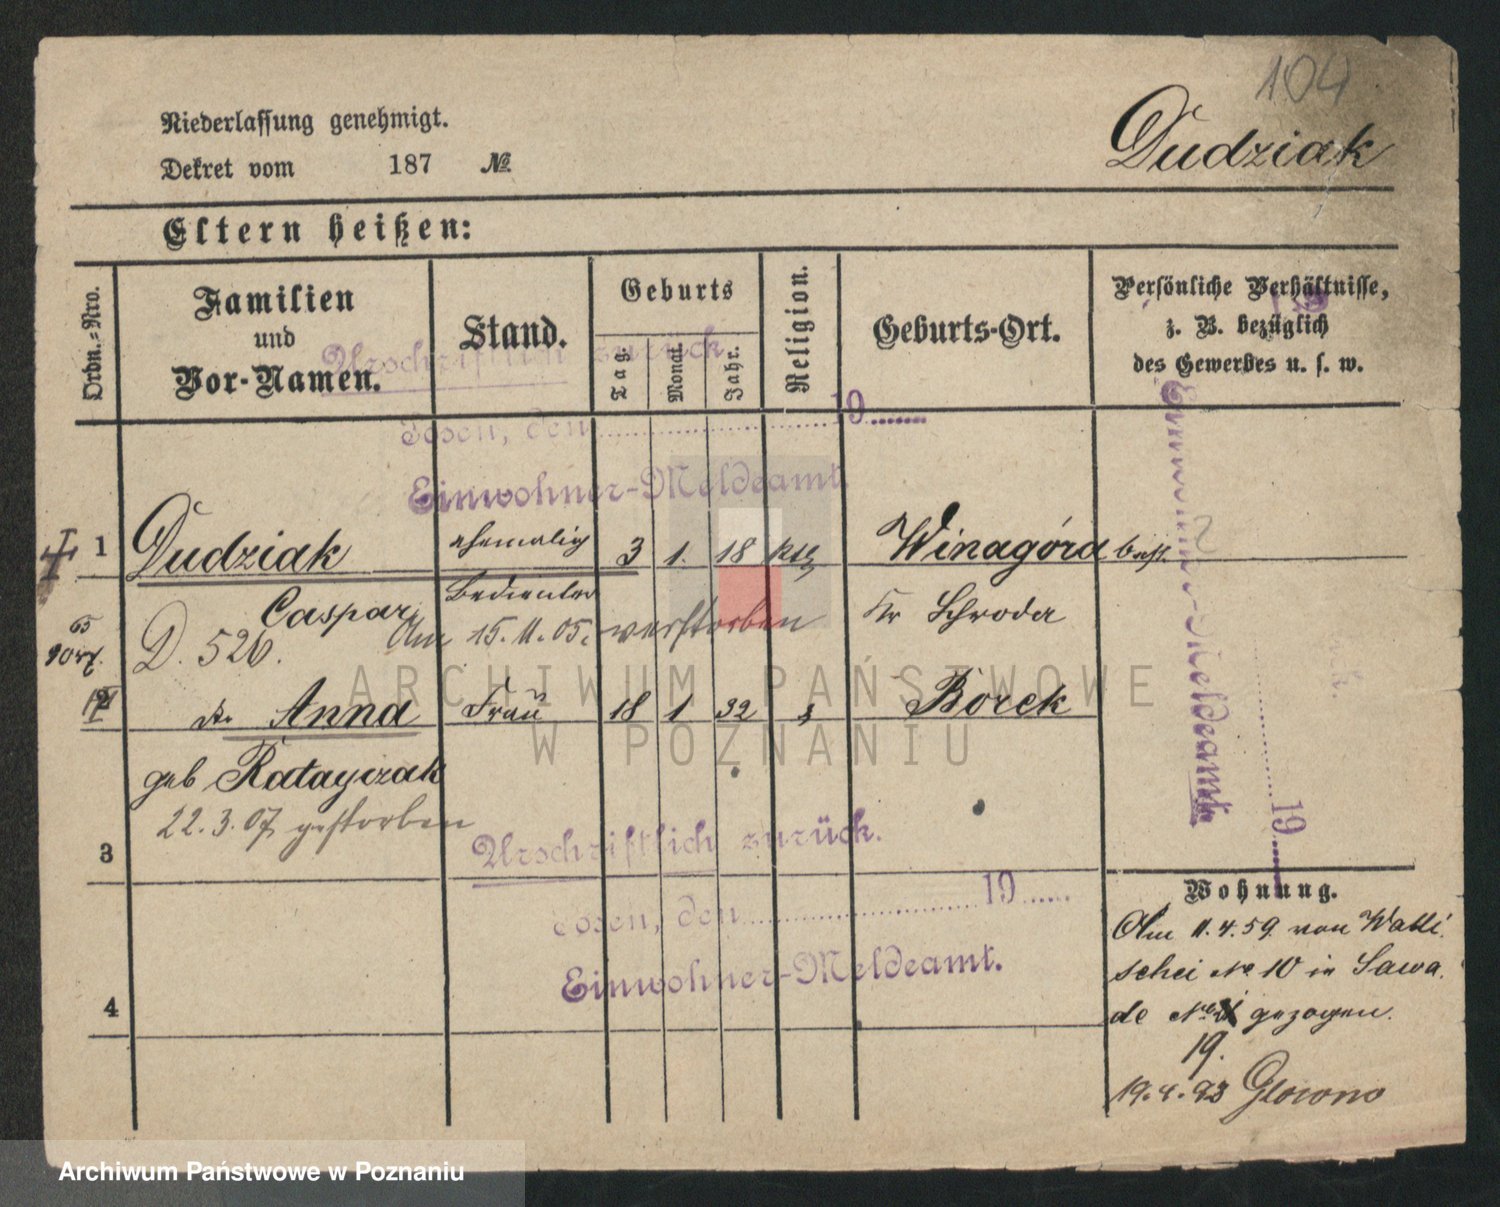 104
Niederlassung genehmigt.
Dudziak
Dekret vom 187 №
Eltern heißen:
Ordn.-Nro.
Familien und Vor-Namen.
Stand.
Geburts
Tag.
Monat.
Jahr.
Religion.
Geburts-Ort.
Persönliche Verhältnisse,
z. B. bezüglich
des Gewerbes u. s. w.
Urschriftlich zurück.
Posen, den 19
Einwohner-Meldeamt.
1 Dudziak ehemalig 3 1. 18 Winagóra
Caspar Bedienter Kr Schroda
D. 526. Am 15.11.05. verstorben
2 Anna Frau 18 1 32 Borek
geb Ratayczak
22.3.07 gestorben
3
Urschriftlich zurück.
Posen, den 19
Einwohner-Meldeamt.
4
Einwohner-Meldeamt.
19
Wohnung.
Am 11.4.59 von Walli
schei № 10 in Sawa
de № gezogen.
19.
19.4.93 Glowno
ARCHIWUM PAŃSTWOWE
W POZNANIU
Archiwum Państwowe w Poznaniu